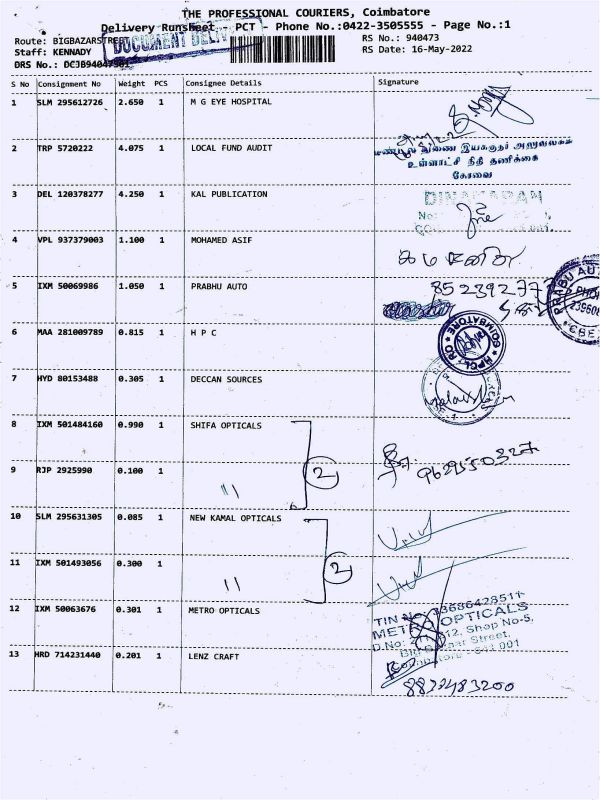 THE PROFESSIONAL COURIERS, Coimbatore
Delivery Runsheet - PCT - Phone No.:0422-3505555 - Page No.:1
Route: BIGBAZARSTREET
DOCUMENT
RS No.: 940473
Staff: KENNADY
RS Date: 16-May-2022
DRS No.:
S No Consignment No Weight PCS Consignee Details Signature
1 SLM 295612726 2.650 1 M G EYE HOSPITAL
2 TRP 5720222 4.075 1 LOCAL FUND AUDIT
துணை இயக்குநர் அலுவலகம்
உள்ளாட்சி நிதி தணிக்கை
கோவை
3 DEL 120378277 4.250 1 KAL PUBLICATION
DINAKARAN
4 VPL 937379003 1.100 1 MOHAMED ASIF
5 IXM 50069986 1.050 1 PRABHU AUTO
PRABU AUTO
6 MAA 281009789 0.815 1 H P C
HPCL RO COIMBATORE
7 HYD 80153488 0.305 1 DECCAN SOURCES
8 IXM 501484160 0.990 1 SHIFA OPTICALS
2
9629550327
9 RJP 2925990 0.100 1 11
10 SLM 295631305 0.085 1 NEW KAMAL OPTICALS
2
11 IXM 501493056 0.300 1 11
12 IXM 50063676 0.301 1 METRO OPTICALS
TIN No.
METRO OPTICALS
D.No: 212, Shop No-5,
Street,
Coimbatore - 641 001
13 HRD 714231440 0.201 1 LENZ CRAFT